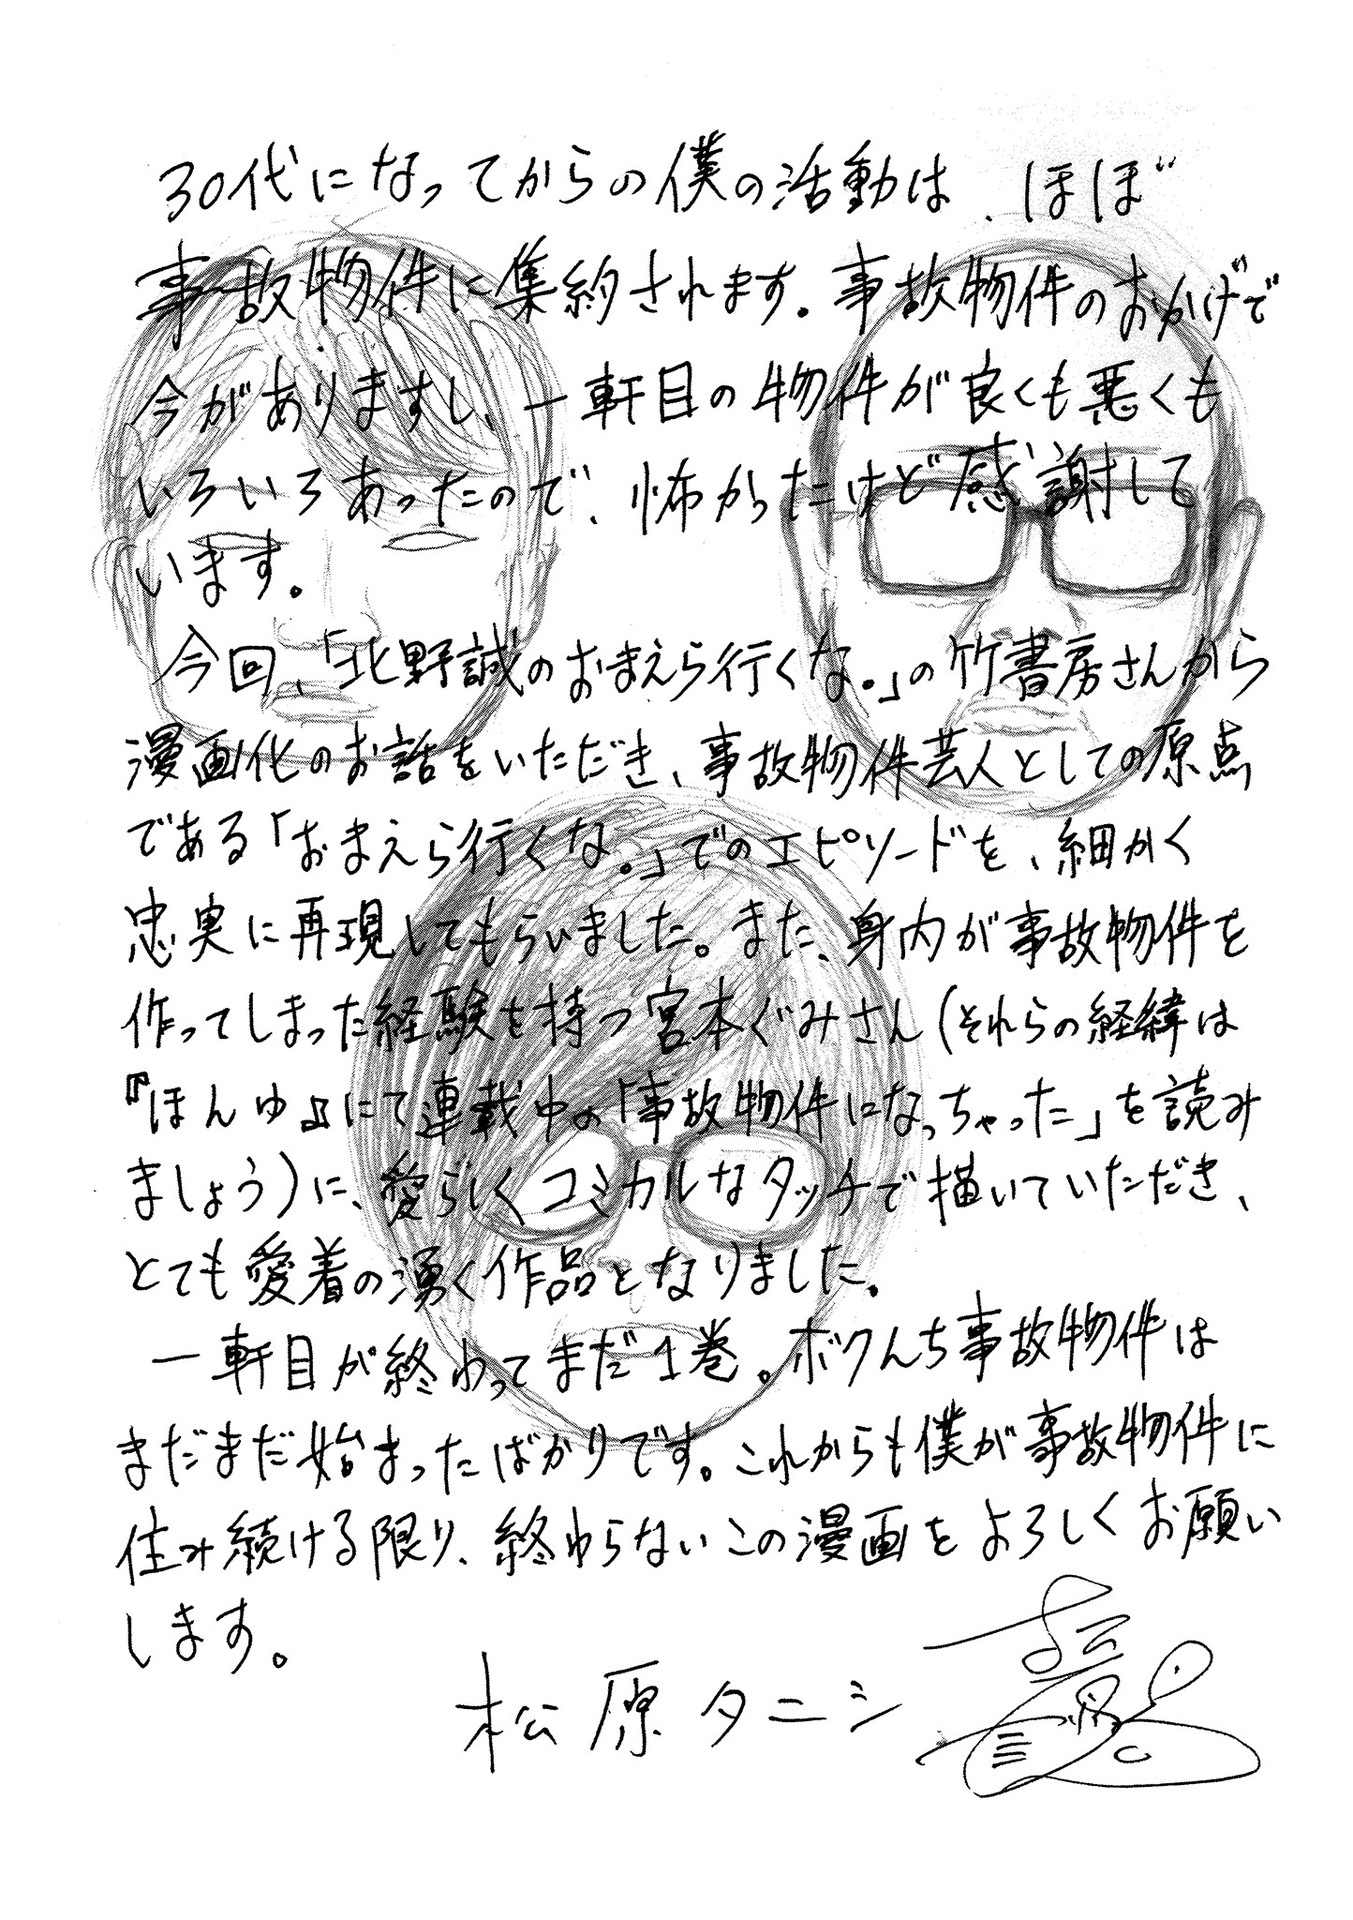 30代になってからの僕の活動は、ほぼ
事故物件に集約されます。事故物件のおかげで
今がありますし、一軒目の物件が良くも悪くも
いろいろあったので、怖かったけど感謝して
います。
今回、「北野誠のおまえら行くな。」の竹書房さんから
漫画化のお話をいただき、事故物件芸人としての原点
である「おまえら行くな。」でのエピソードを、細かく
忠実に再現してもらいました。また、身内が事故物件を
作ってしまった経験を持つ宮本ぐみさん(それらの経緯は
『ほんゆ』にて連載中の「事故物件になっちゃった」を読み
ましょう)に、愛らしくコミカルなタッチで描いていただき、
とても愛着の湧く作品となりました。
一軒目が終わってまだ1巻。ボクんち事故物件は
まだまだ始まったばかりです。これからも僕が事故物件に
住み続ける限り、終わらないこの漫画をよろしくお願い
します。
松原タニシ